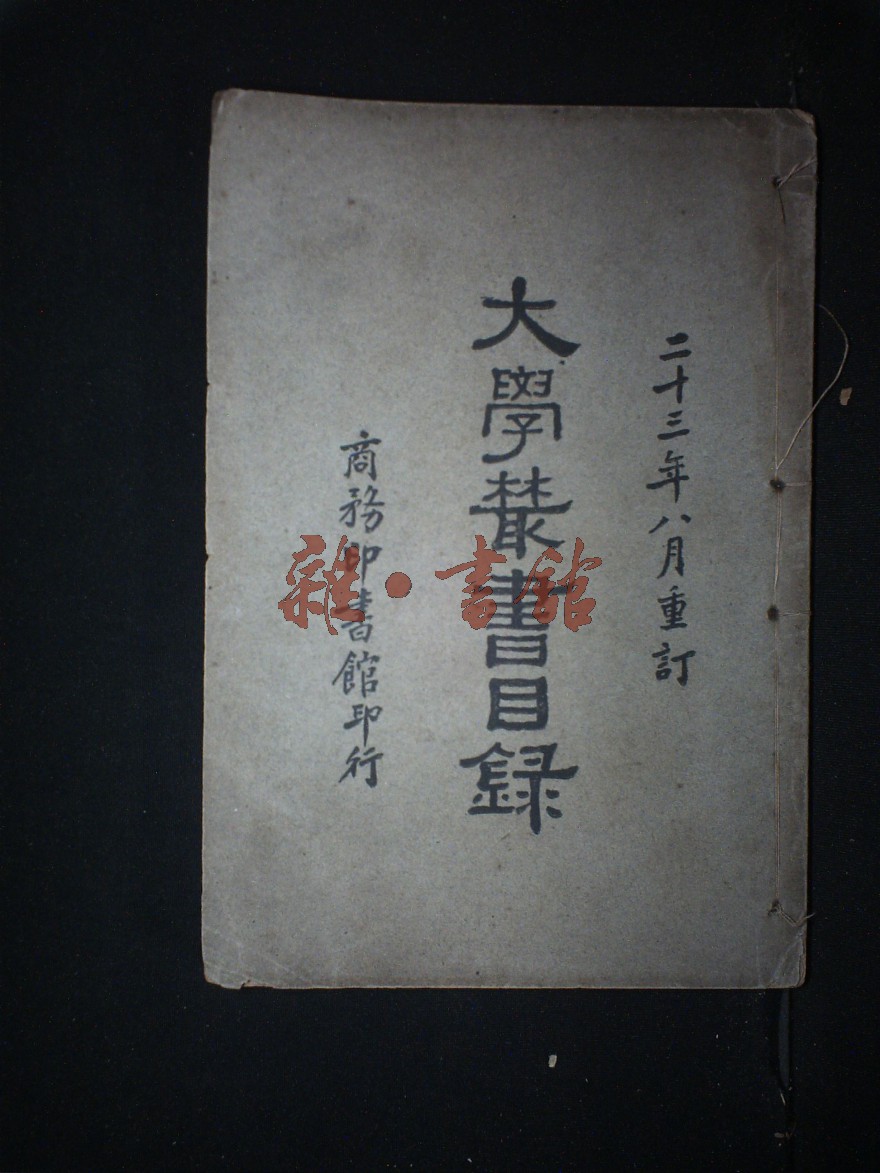 二十三年八月重訂
大學叢書目錄
商務印書館印行
雜·書館